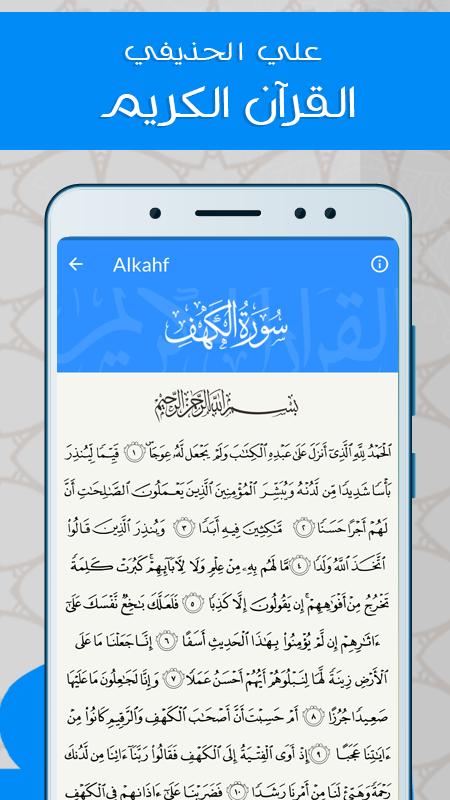 علي الحذيفي
القرآن الكريم
Alkahf
سُورَةُ الكَهْفِ
بِسْمِ اللَّهِ الرَّحْمَٰنِ الرَّحِيمِ
ٱلْحَمْدُ لِلَّهِ ٱلَّذِىٓ أَنزَلَ عَلَىٰ عَبْدِهِ ٱلْكِتَٰبَ وَلَمْ يَجْعَل لَّهُۥ عِوَجَاۜ ١ قَيِّمًا لِّيُنذِرَ
بَأْسًا شَدِيدًا مِّن لَّدُنْهُ وَيُبَشِّرَ ٱلْمُؤْمِنِينَ ٱلَّذِينَ يَعْمَلُونَ ٱلصَّٰلِحَٰتِ أَنَّ
لَهُمْ أَجْرًا حَسَنًا ٢ مَّٰكِثِينَ فِيهِ أَبَدًا ٣ وَيُنذِرَ ٱلَّذِينَ قَالُوا۟
ٱتَّخَذَ ٱللَّهُ وَلَدًا ٤ مَّا لَهُم بِهِۦ مِنْ عِلْمٍ وَلَا لِءَابَآئِهِمْ ۚ كَبُرَتْ كَلِمَةً
تَخْرُجُ مِنْ أَفْوَٰهِهِمْ ۚ إِن يَقُولُونَ إِلَّا كَذِبًا ٥ فَلَعَلَّكَ بَٰخِعٌ نَّفْسَكَ عَلَىٰٓ
ءَاثَٰرِهِمْ إِن لَّمْ يُؤْمِنُوا۟ بِهَٰذَا ٱلْحَدِيثِ أَسَفًا ٦ إِنَّا جَعَلْنَا مَا عَلَى
ٱلْأَرْضِ زِينَةً لَّهَا لِنَبْلُوَهُمْ أَيُّهُمْ أَحْسَنُ عَمَلًا ٧ وَإِنَّا لَجَٰعِلُونَ مَا عَلَيْهَا
صَعِيدًا جُرُزًا ٨ أَمْ حَسِبْتَ أَنَّ أَصْحَٰبَ ٱلْكَهْفِ وَٱلرَّقِيمِ كَانُوا۟ مِنْ
ءَايَٰتِنَا عَجَبًا ٩ إِذْ أَوَى ٱلْفِتْيَةُ إِلَى ٱلْكَهْفِ فَقَالُوا۟ رَبَّنَآ ءَاتِنَا مِن لَّدُنكَ
رَحْمَةً وَهَيِّئْ لَنَا مِنْ أَمْرِنَا رَشَدًا ١٠ فَضَرَبْنَا عَلَىٰٓ ءَاذَانِهِمْ فِى ٱلْكَهْفِ